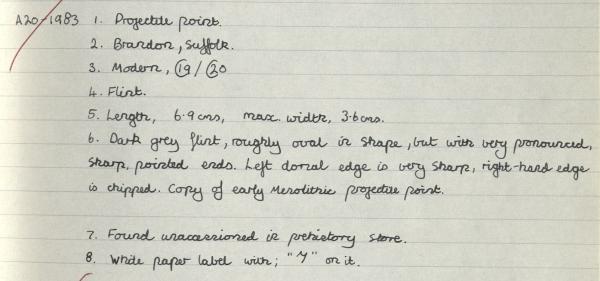 A20/1983 1. Projectile point.
2. Brandon, Suffolk.
3. Modern, 19 / 20
4. Flint.
5. Length, 6.9 cms, max. width, 3.6 cms.
6. Dark grey flint, roughly oval in shape, but with very pronounced,
sharp, pointed ends. Left dorsal edge is very sharp, right-hand edge
is chipped. Copy of early Mesolithic projectile point.
7. Found unaccessioned in prehistory store.
8. White paper label with; "Y" on it.